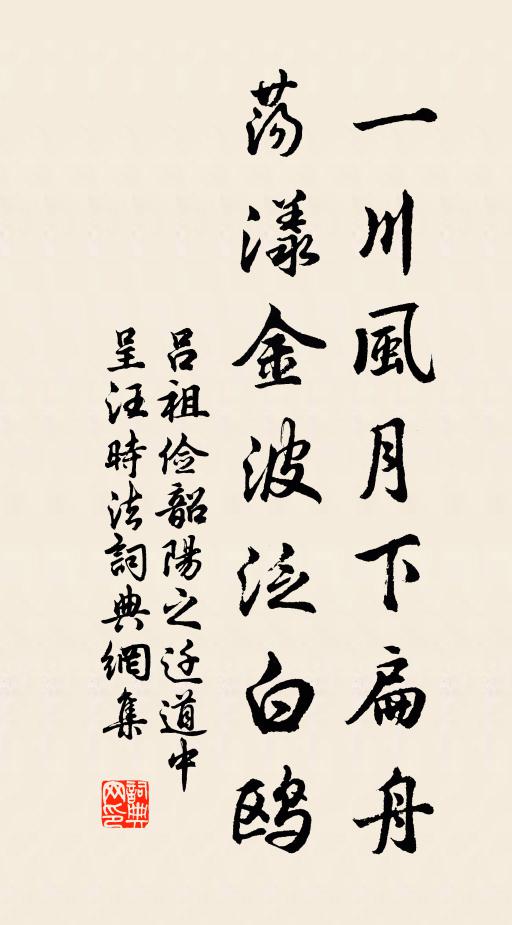 一川風月下扁舟
荡漾金波泛白鸥
呂祖俭韶陽之迁道中
呈汪時法詞典網集
詞典
网印